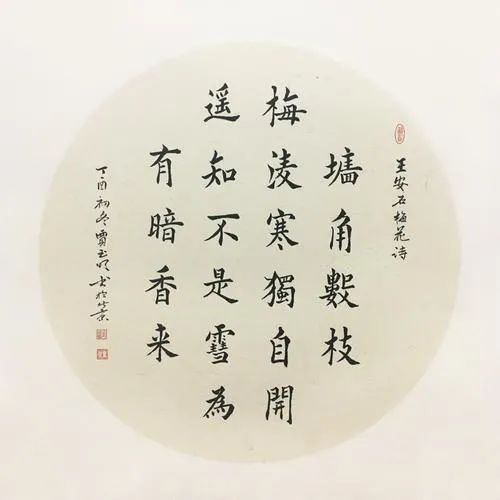 王安石梅花詩
墙角數枝
梅淩寒獨自開
遥知不是雪為
有暗香来
丁酉初冬賈玉书於京